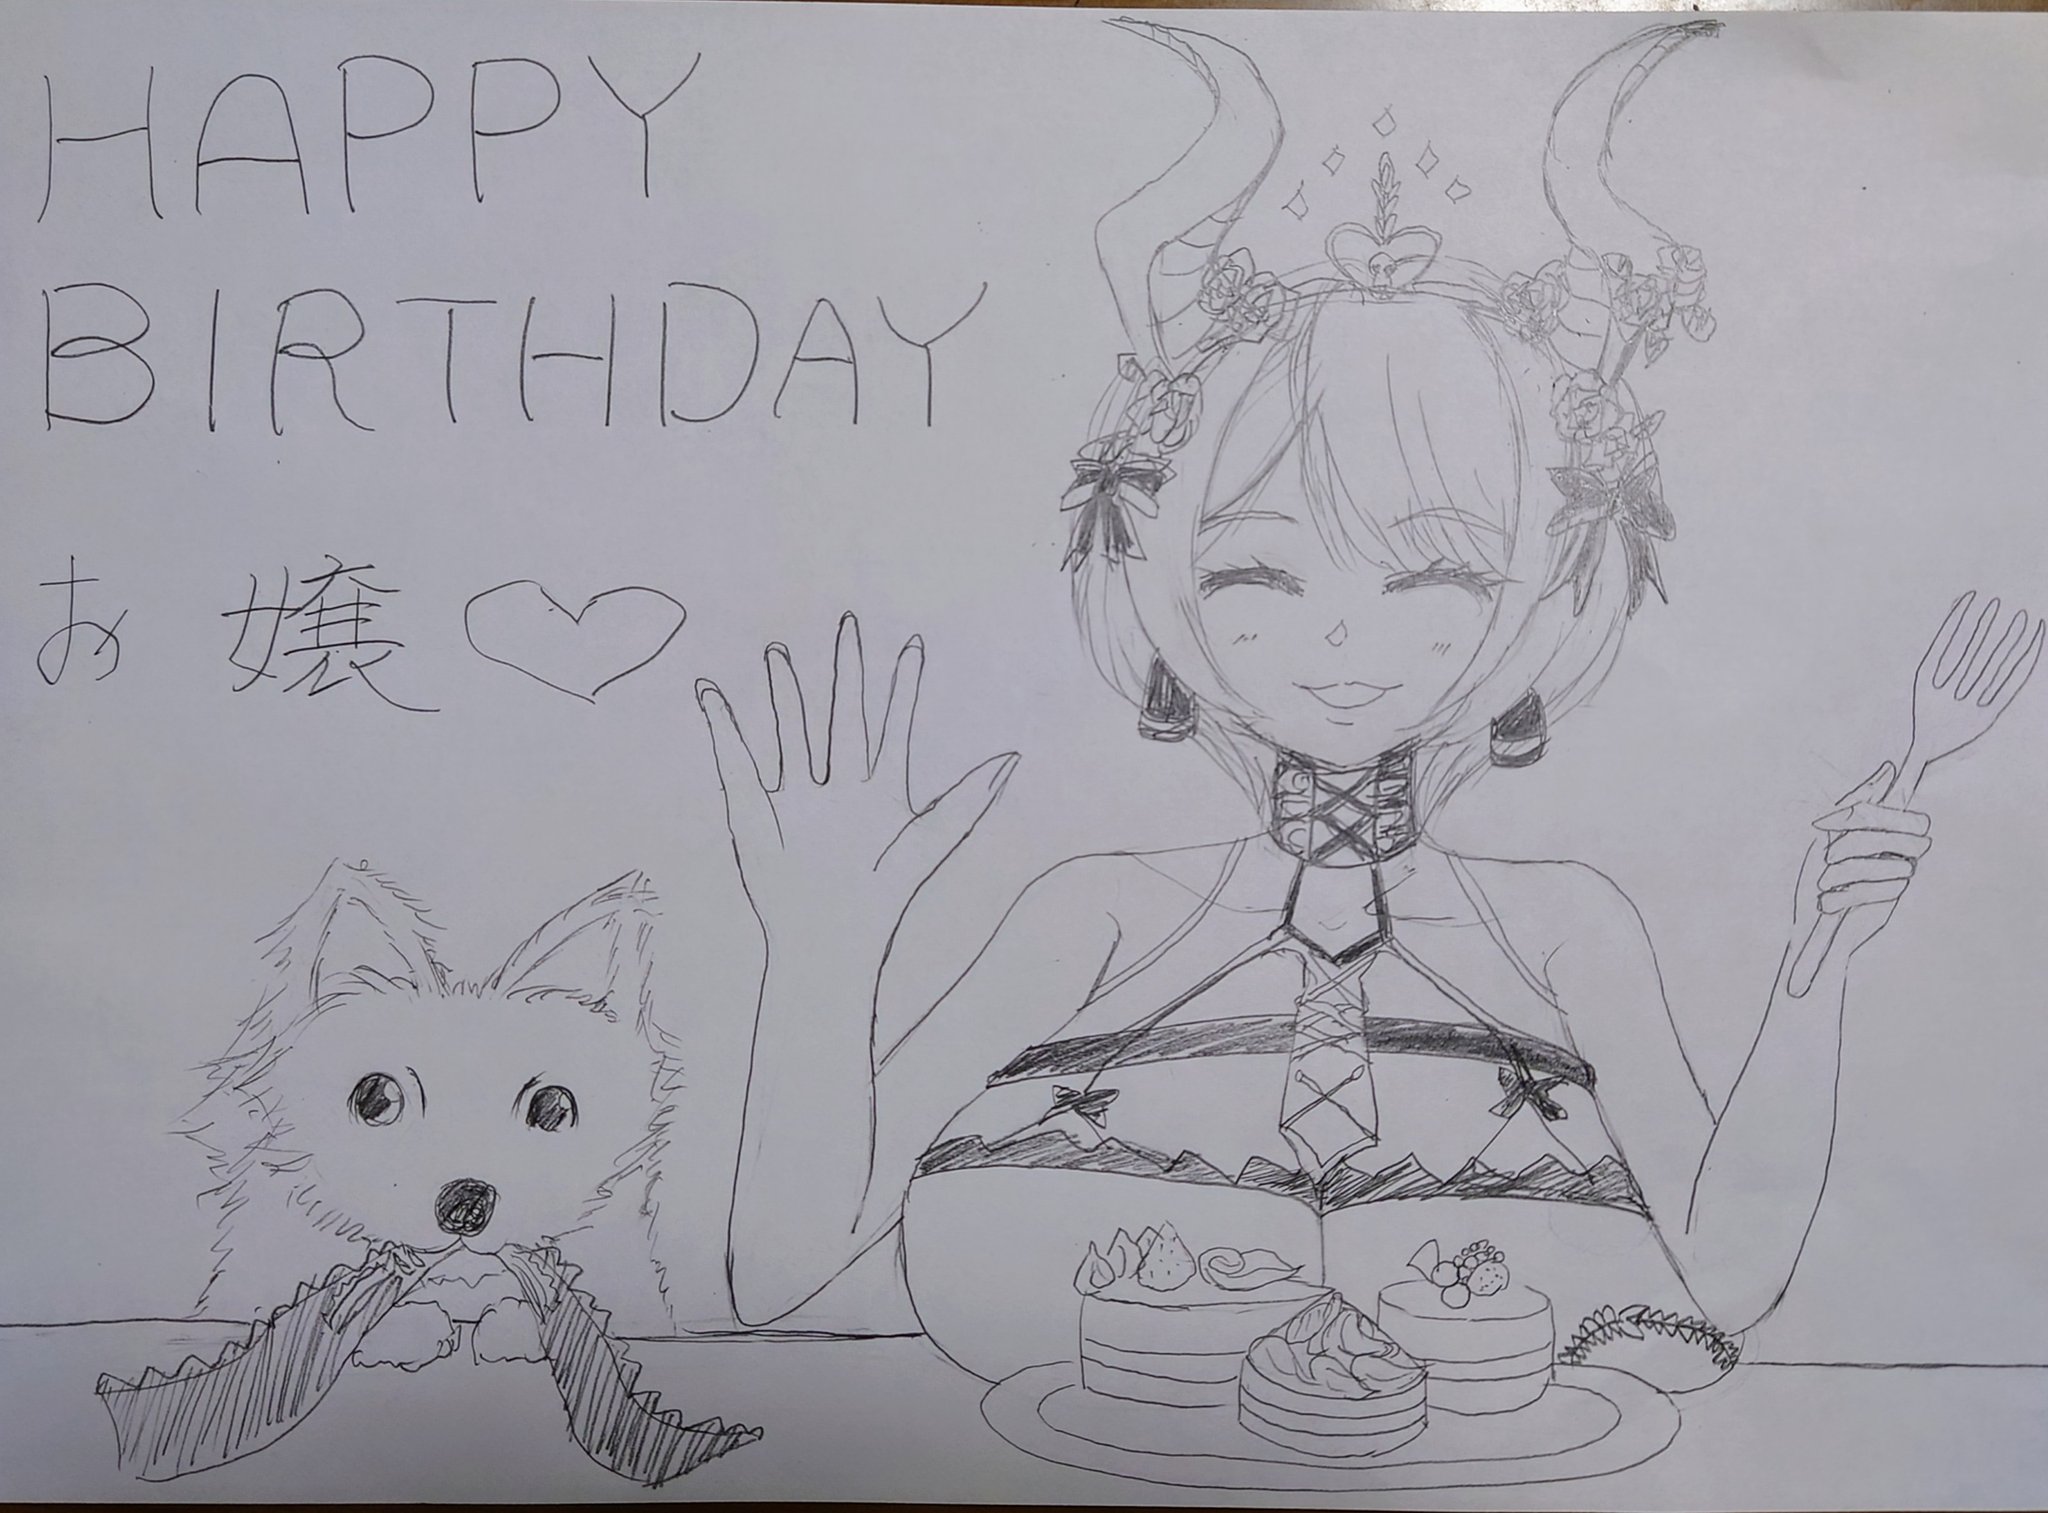 HAPPY
BIRTHDAY
お嬢♡